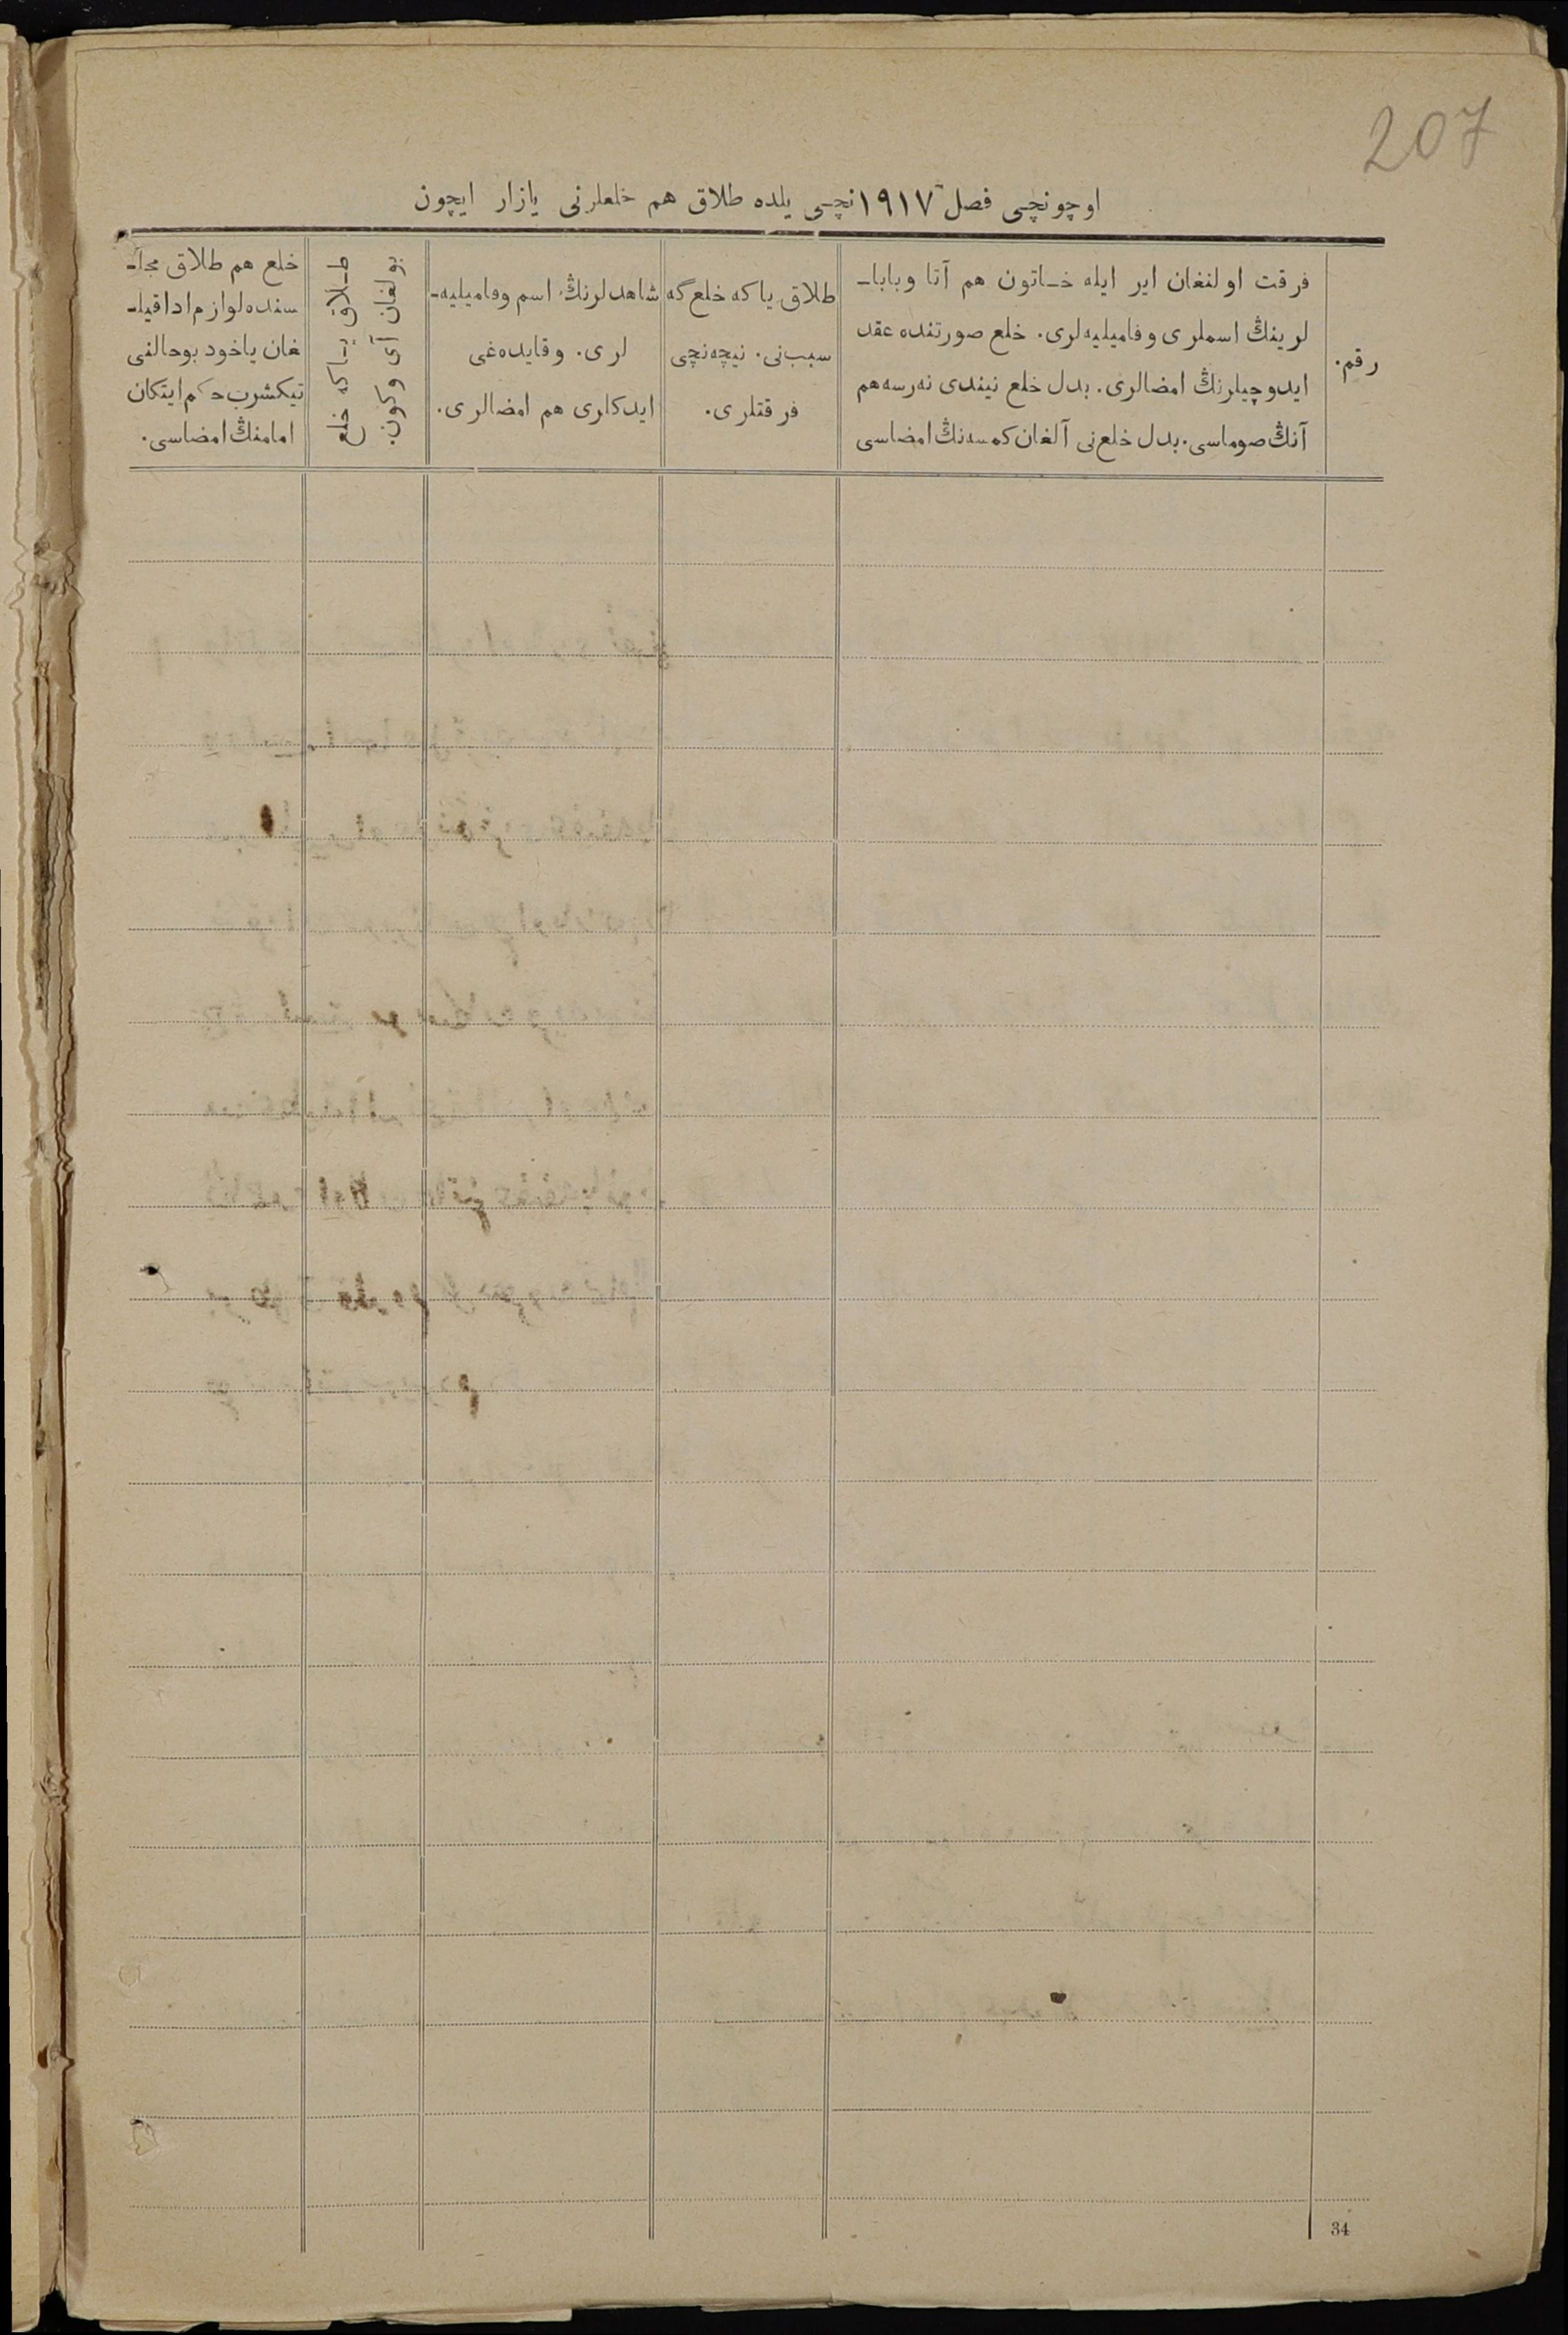 207
اوچونچی فصل ١٩١٧نچی یلده طلاق هم خلعلرنی یازار ایچون
رقم.
فرقت اولنغان ایر ایله خـاتون هم آتا و باباـ
لرینڭ اسملری و فامیلیه‌لری. خلع صورتنده عقد
ایدوچیلرنڭ امضالری. بدل خلع نیندی نه‌رسه هم
آنڭ صوماسی. بدل خلع‌نی آلغان کمسه‌نڭ امضاسی
طلاق یا که خلع گه
سبب‌نی. نیچه‌نچی
فرقتلری.
شاهدلرنڭ اسم وفامیلیه‌ـ
لری. وقایده‌غی
ایدکلری هم امضالری.
طـلاق یـاکه خلع
بولغان آی وکون.
خلع هم طلاق مجلـ
سنده لوازم ادا قیلـ
غان یاخود بوحالنی
تیکشرب حکم ایتکان
امامنڭ امضاسی.
34